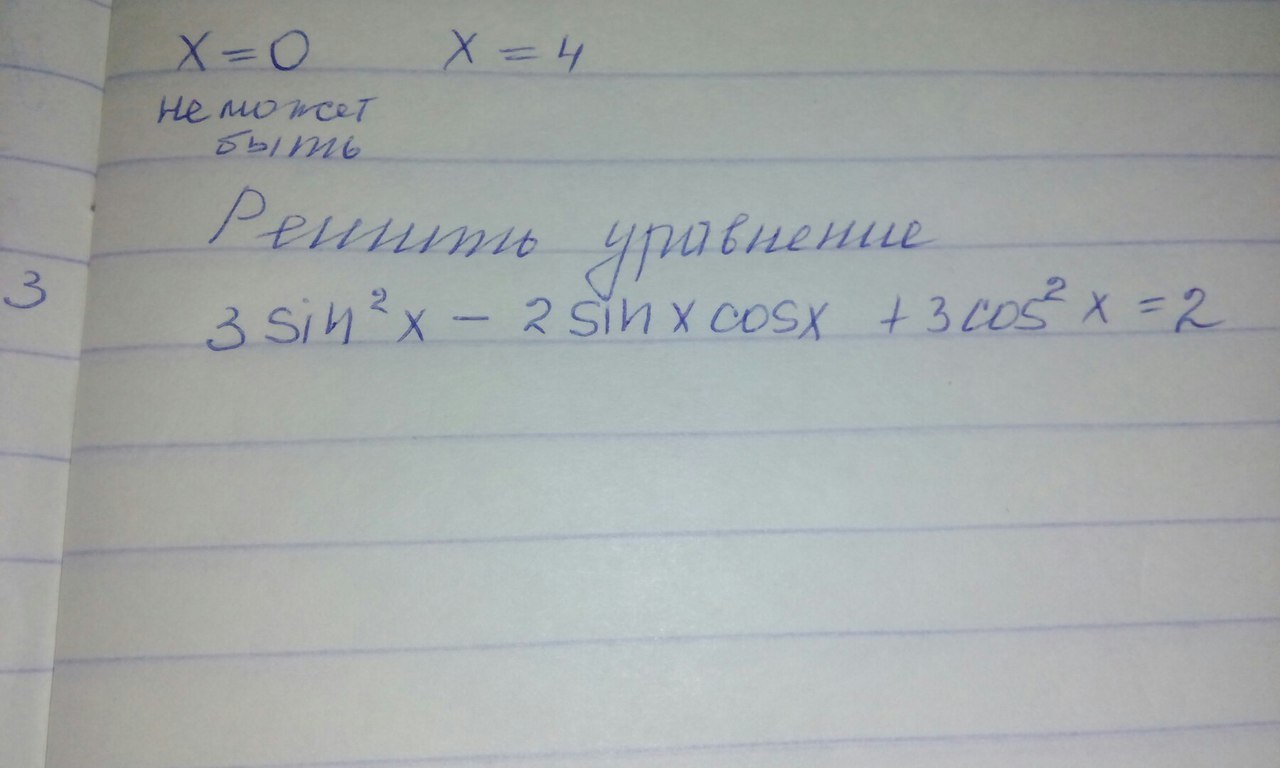 x = 0 x = 4
не может
быть
Решить уравнение
3
3 sin² x - 2 sin x cos x + 3 cos² x = 2